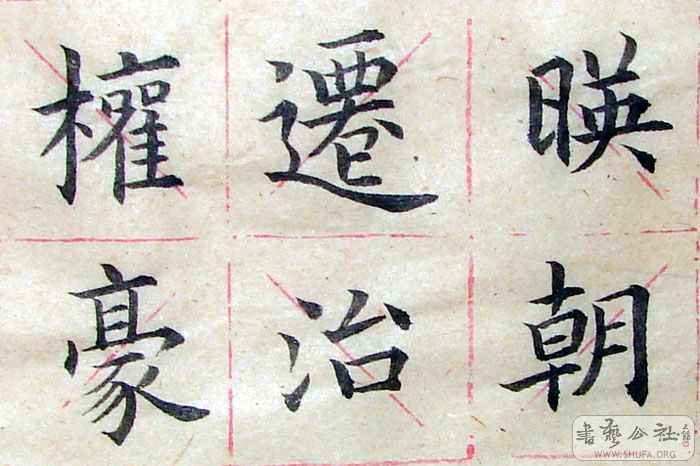 暎朝
遷治
權豪
書藝公社
WWW.SHUFA.ORG